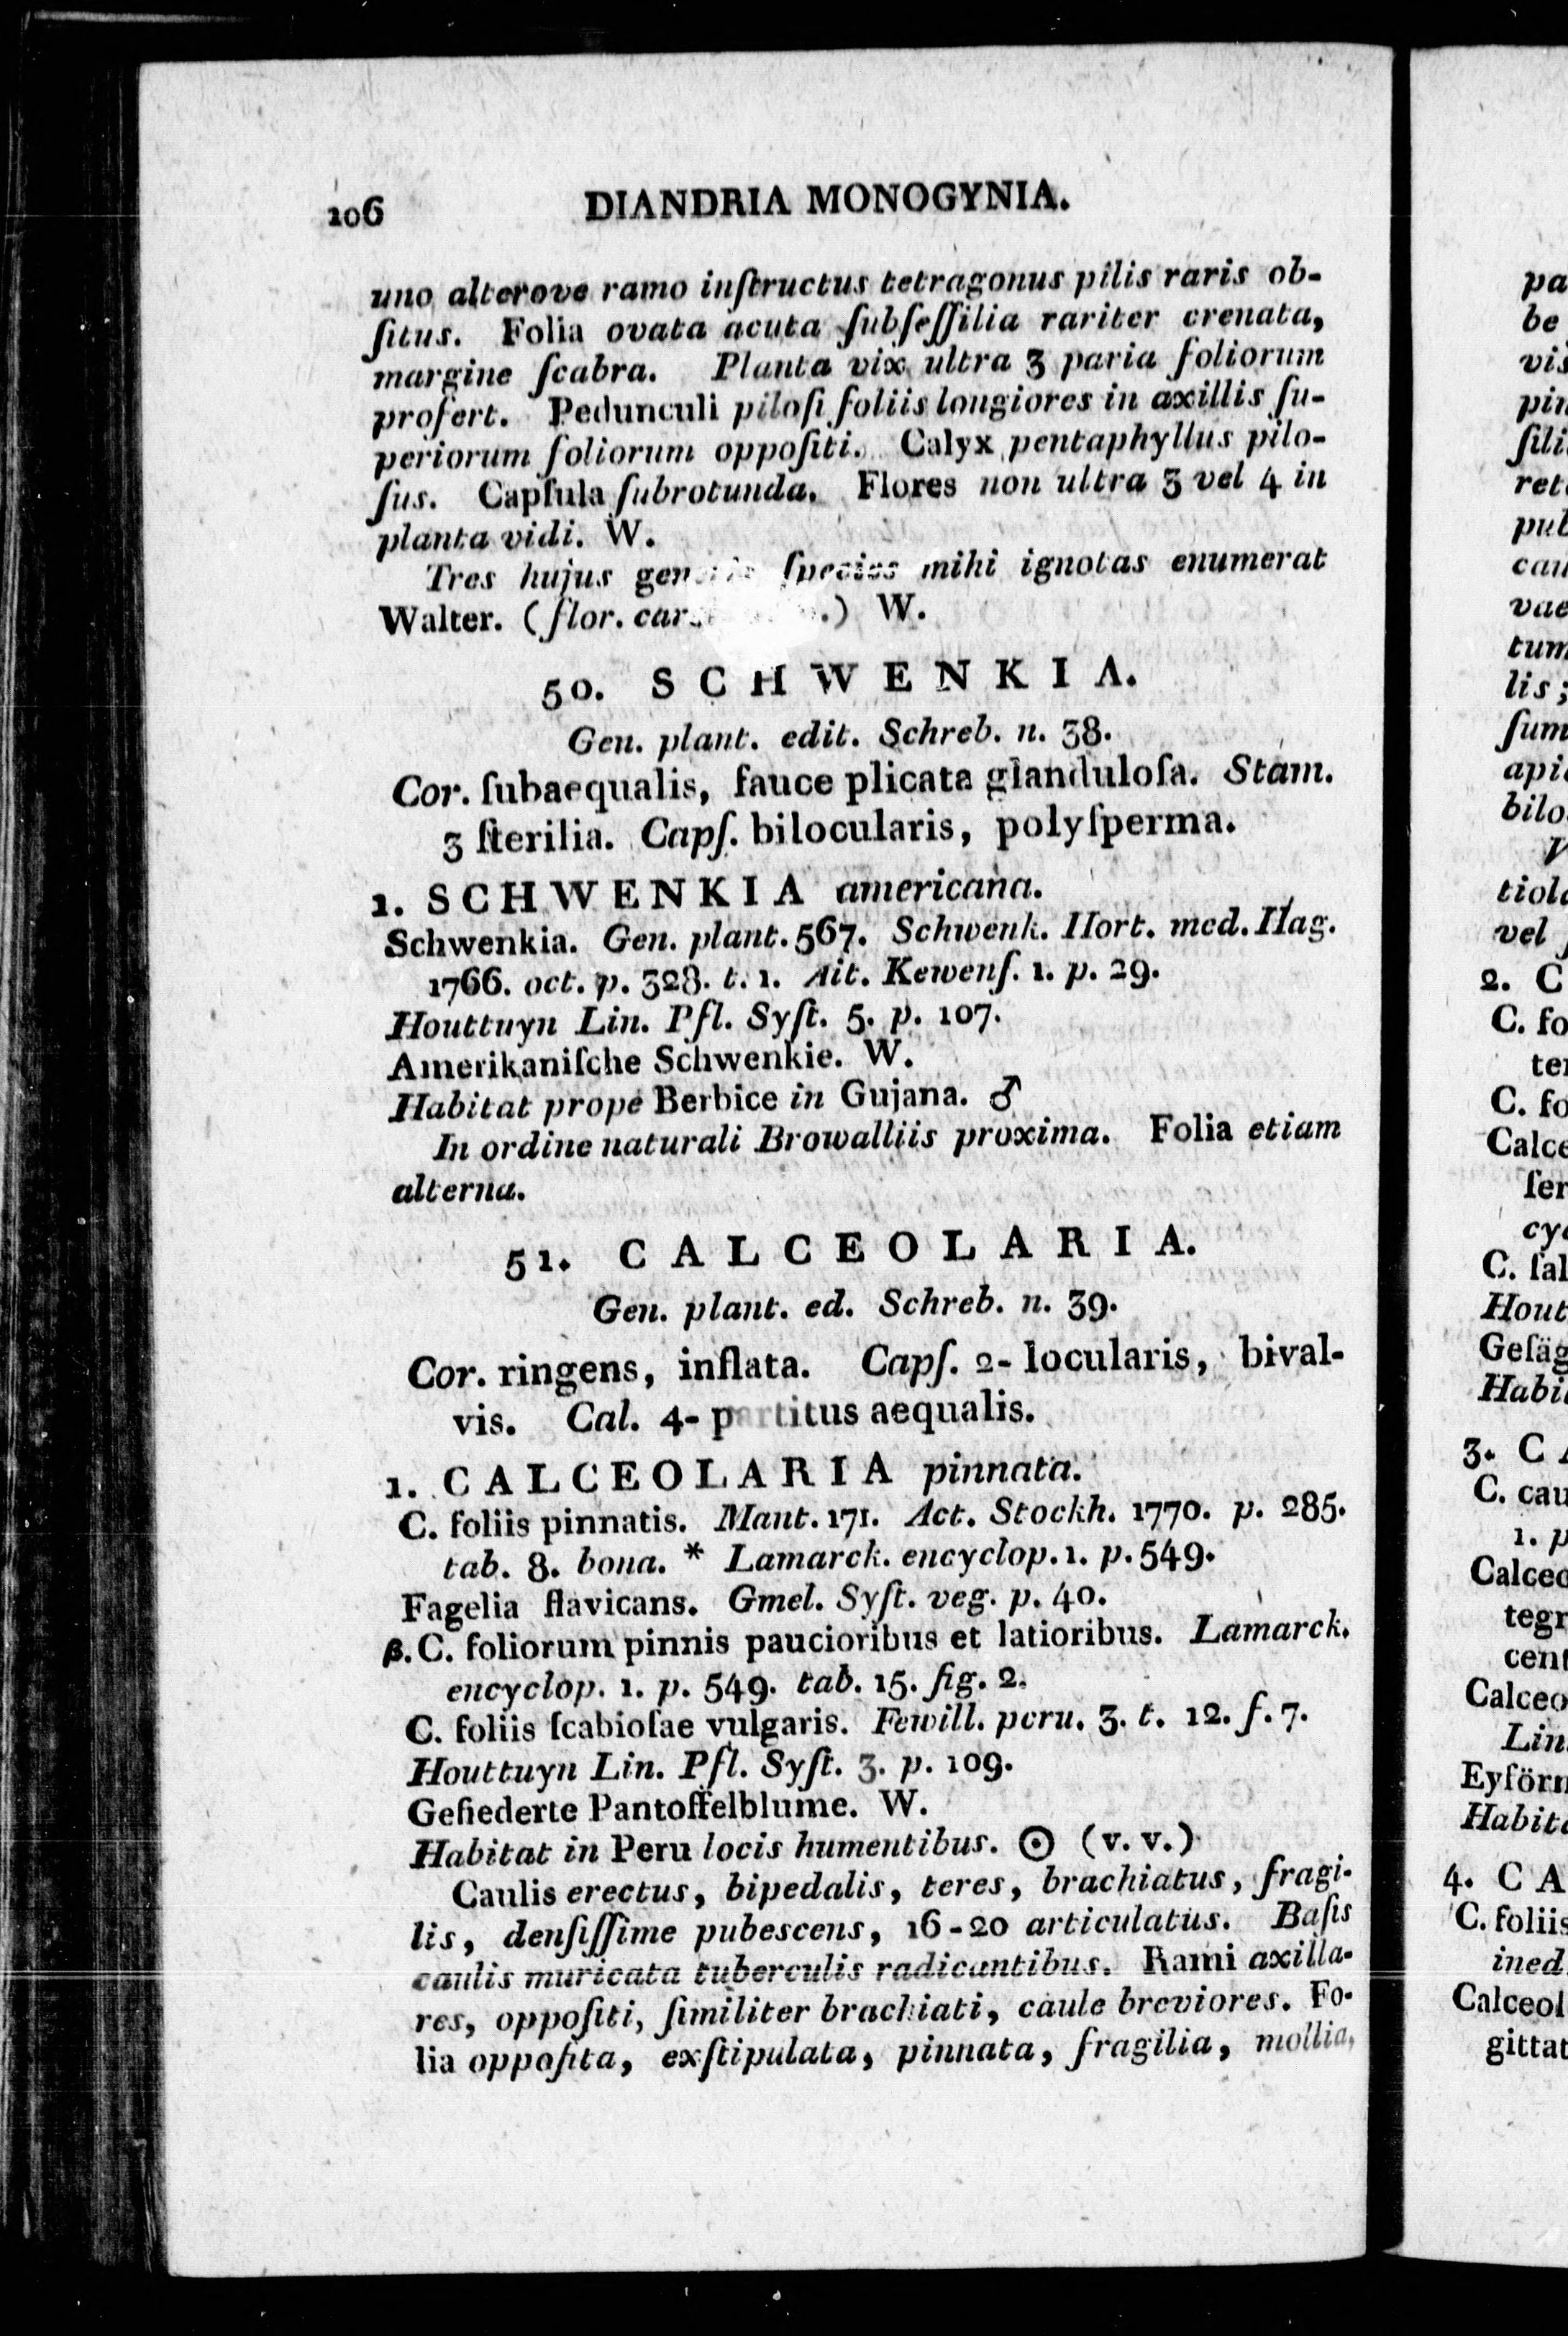 106 DIANDRIA MONOGYNIA.
uno alterove ramo inſtructus tetragonus pilis raris ob-
ſitus. Folia ovata acuta ſubſeſſilia rariter crenata,
margine ſcabra. Planta vix ultra 3 paria foliorum
profert. Pedunculi piloſi foliis longiores in axillis ſu-
periorum foliorum oppoſiti. Calyx pentaphyllus pilo-
ſus. Capſula ſubrotunda. Flores non ultra 3 vel 4 in
planta vidi. W.
Tres hujus ſpecies mihi ignotas enumerat
Walter. (flor. .) W.
50. SCHWENKIA.
Gen. plant. edit. Schreb. n. 38.
Cor. ſubaequalis, fauce plicata glanduloſa. Stam.
3 ſterilia. Capſ. bilocularis, polyſperma.
1. SCHWENKIA americana.
Schwenkia. Gen. plant. 567. Schwenk. Hort. med. Hag.
1766. oct. p. 328. t. 1. Ait. Kewenſ. 1. p. 29.
Houttuyn Lin. Pfl. Syſt. 5. p. 107.
Amerikaniſche Schwenkie. W.
Habitat prope Berbice in Gujana. ♂
In ordine naturali Browalliis proxima. Folia etiam
alterna.
51. CALCEOLARIA.
Gen. plant. ed. Schreb. n. 39.
Cor. ringens, inflata. Capſ. 2-locularis, bival-
vis. Cal. 4-partitus aequalis.
1. CALCEOLARIA pinnata.
C. foliis pinnatis. Mant. 171. Act. Stockh. 1770. p. 285.
tab. 8. bona. * Lamarck. encyclop. 1. p. 549.
Fagelia flavicans. Gmel. Syſt. veg. p. 40.
β. C. foliorum pinnis paucioribus et latioribus. Lamarck.
encyclop. 1. p. 549. tab. 15. fig. 2.
C. foliis ſcabioſae vulgaris. Fewill. peru. 3. t. 12. f. 7.
Houttuyn Lin. Pfl. Syſt. 3. p. 109.
Gefiederte Pantoffelblume. W.
Habitat in Peru locis humentibus. ☉ (v. v.)
Caulis erectus, bipedalis, teres, brachiatus, fragi-
lis, denſiſſime pubescens, 16-20 articulatus. Baſis
caulis muricata tuberculis radicantibus. Rami axilla-
res, oppoſiti, ſimiliter brachiati, caule breviores. Fo-
lia oppoſita, exſtipulata, pinnata, fragilia, mollia,
pa
be
vis
pin
ſili
ret
pub
cau
vae
tum
lis;
ſum
apic
bilo
tiola
vel
2. C
C. fo
ter
C. fo
Calce
ſer
cy
C. ſal
Hout
Geſäg
Habit
3. CA
C. cau
1. p
Calceo
tegr
cent
Calceo
Lin
Eyförm
Habita
4. CA
C. foliis
ined
Calceol
gittat